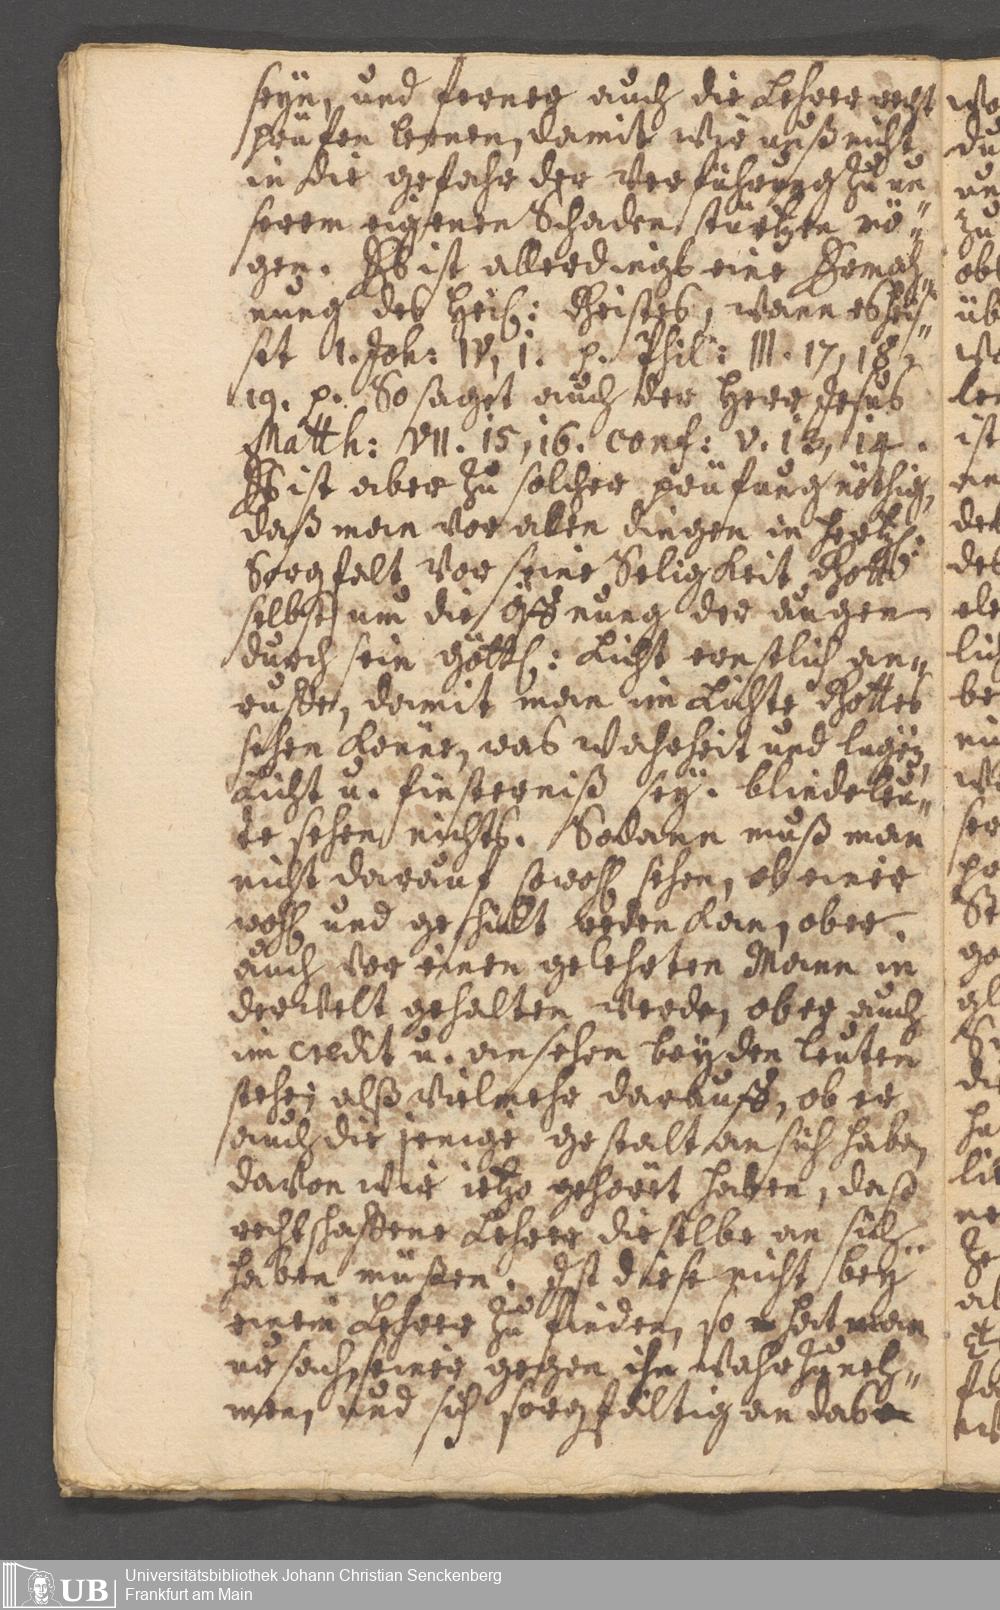 seyn, und ferner auch die Lehrer recht
prüfen lernen, damit wir unß nicht
in die gefahr der Verführung zu un
serem eigenen Schaden stürtzen mö=
gen. Eß ist allerdings eine Ermah=
nung des Heil: Geistes, wann es heis=
set 1. Joh: IV, 1. p. Phil: III. 17, 18,
19. p. So saget auch der Herr Jesus
Matth: VII. 15, 16. conf: v. 13, 14.
Eß ist aber zu solcher prüfung nöthig,
daß man vor allen dingen in hertzl:
Sorgfalt vor seine Seligkeit Gott
selbst um die öffnung der augen
durch sein göttl: Licht ernstlich an=
ruffe, damit man im Lichte Gottes
sehen könne, was wahrheit und lügen,
Licht u. finsterniß sey. blinde leu=
te sehen nichts. Sodann muß man
nicht darauf sowohl sehen, ob einer
wohl und geschickt reden kan, ob er
auch vor einen gelehrten Mann in
der welt gehalten werde, ob er auch
im credit u. ansehen bey den leuten
stehe; alß vielmehr darauff, ob er
auch die jenige gestalt an sich habe,
davon wir jetzo gehöret haben, daß
rechtschaffene Lehrer dieselbe an sich
haben müßen. Ist diese nicht bey
einem Lehrer zu finden, so hat man
ursach, seiner gegen ihn wahrzuneh=
men, und sich sorgfältig an das
Universitätsbibliothek Johann Christian Senckenberg
Frankfurt am Main
UB